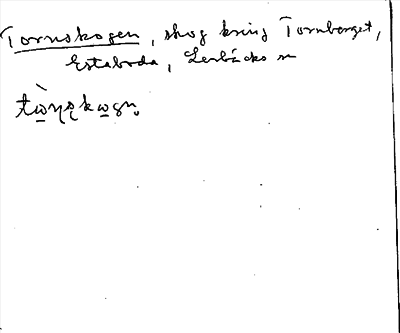 Tornskogen, skog kring Tornberget,
Estaboda, Lerbäcks sn